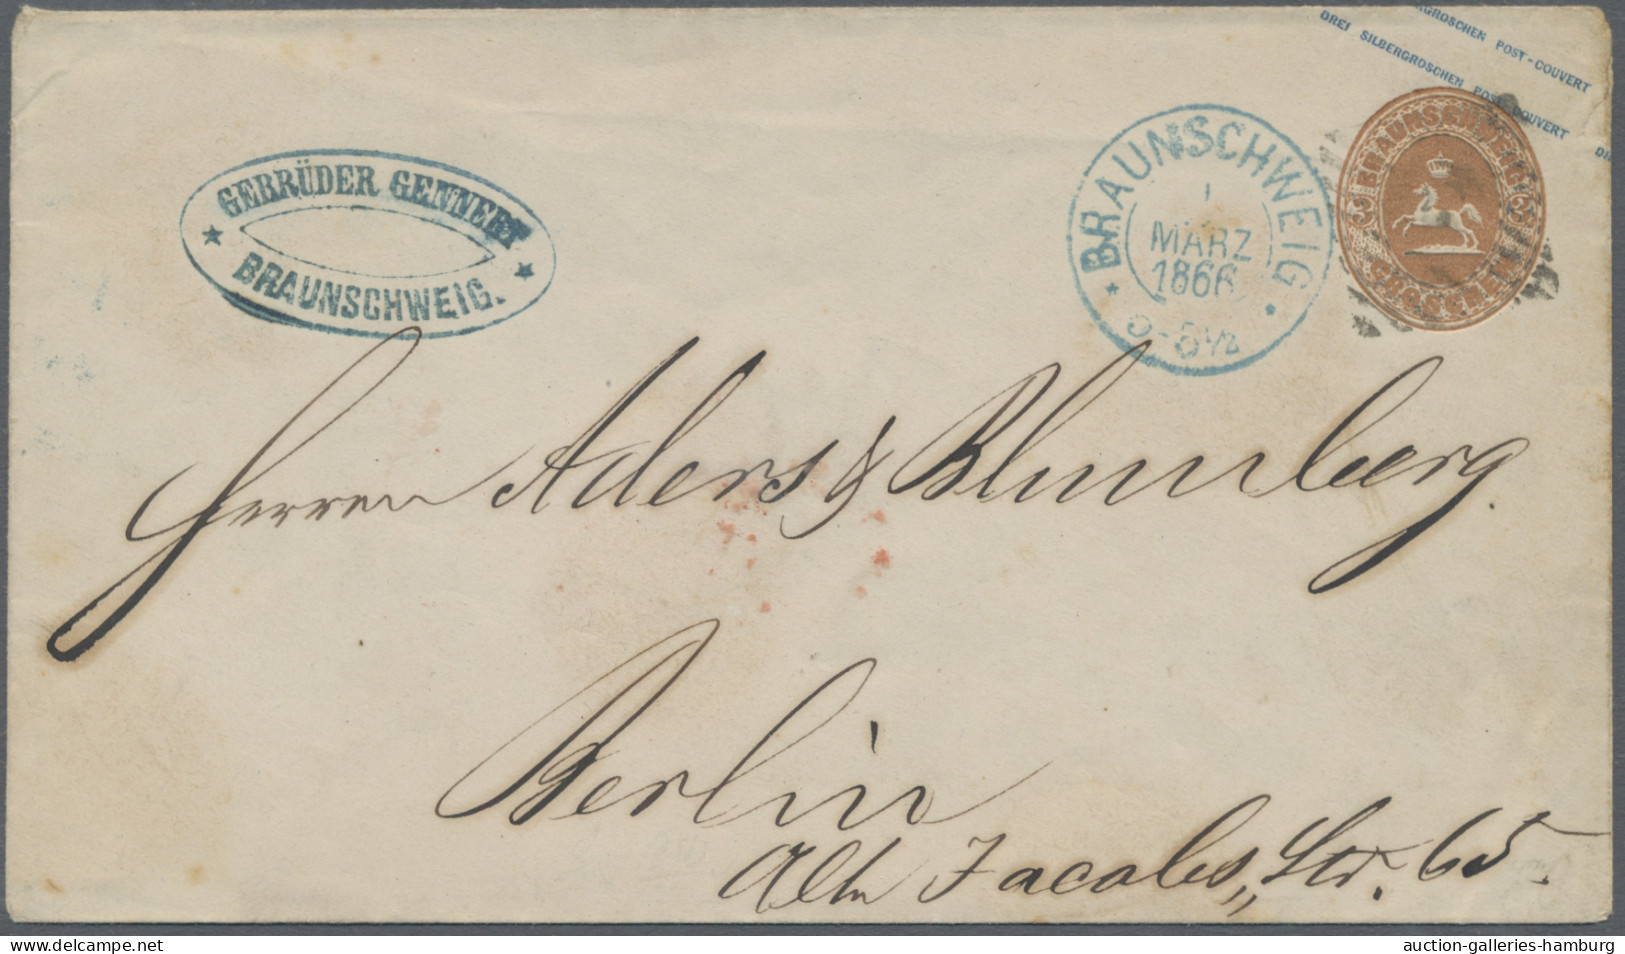 GROSCHEN POST-COUVERT
DREI SILBERGROSCHEN POST COUVERT
GEBRÜDER GENNERT
BRAUNSCHWEIG.
BRAUNSCHWEIG
1
MÄRZ
1866
5-5½
BRAUNSCHWEIG
3 3
GROSCHEN
Herren Aders & Blumberg.
Berlin
Alte Jacobs Str. 65.
auction-galleries-hamburg